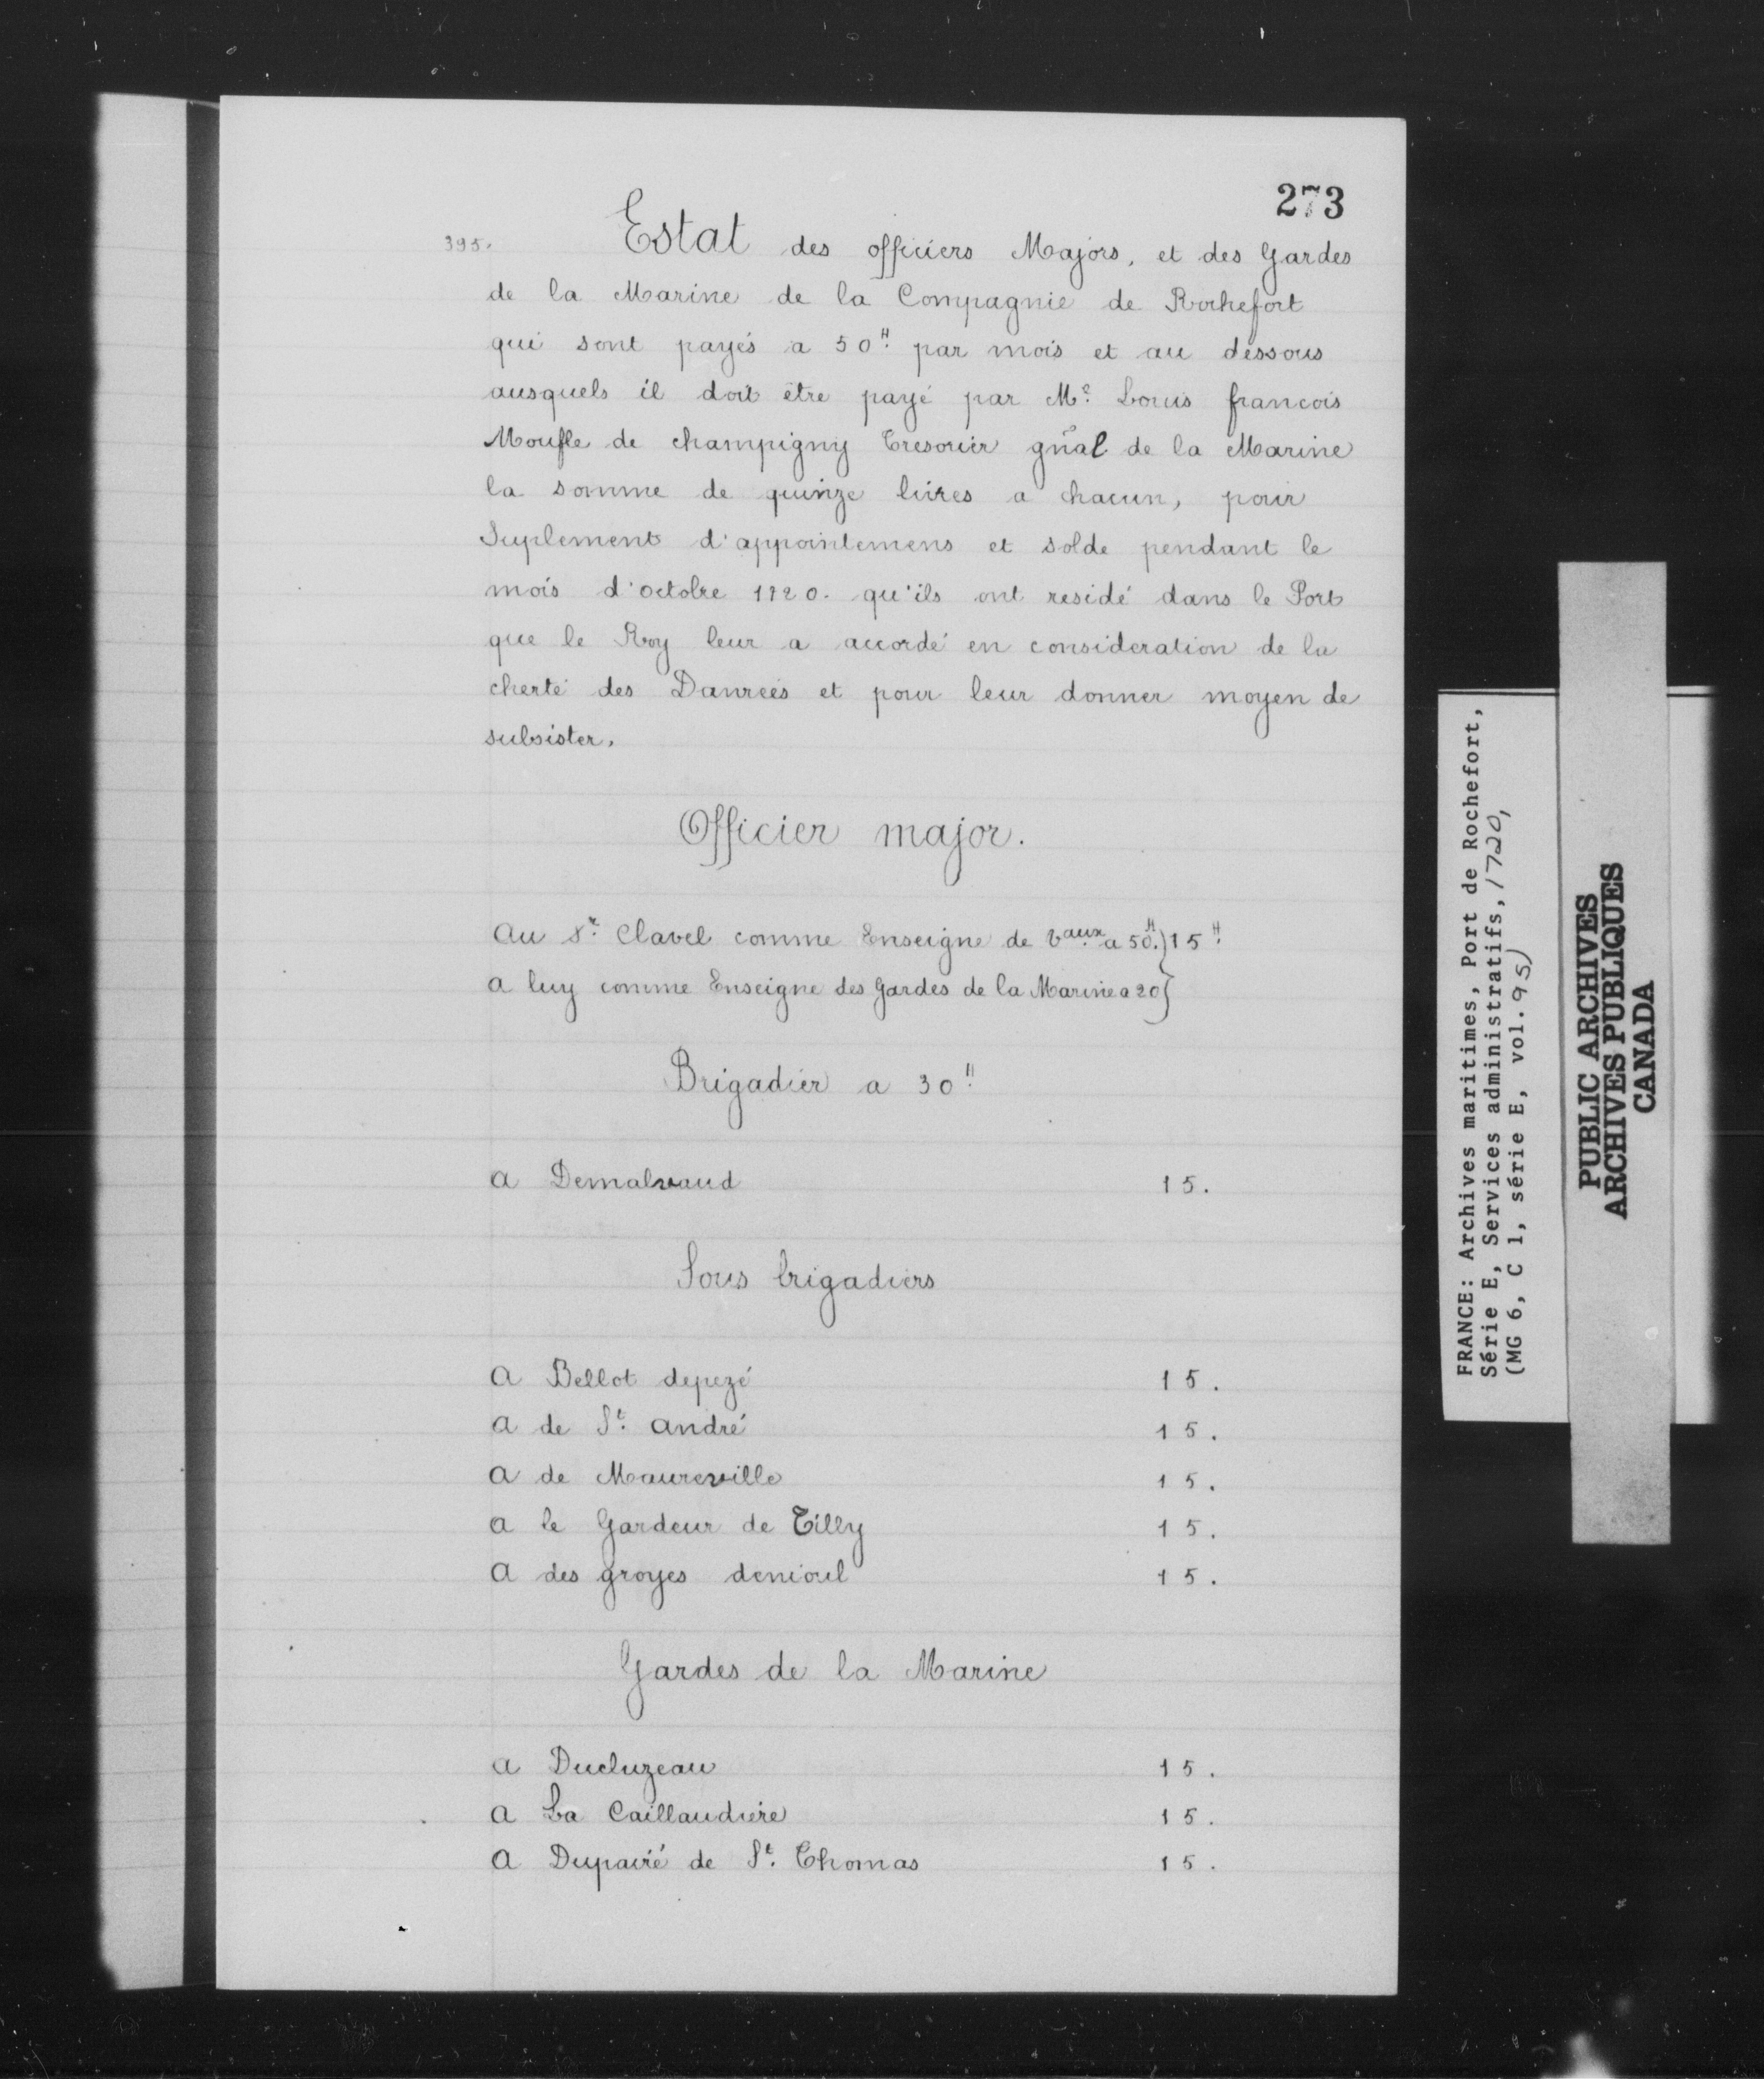 273
395. Estat des officiers Majors, et des Gardes
de la Marine de la Compagnie de Rochefort
qui sont payés a 50# par mois et au dessous
ausquels il doit être payé par Me. Louis francois
Moufle de champigny Tresorier gñal de la Marine
la somme de quinze livres a chacun, pour
Suplement d'appointemens et solde pendant le
mois d'octobre 1720. qu'ils ont residé dans le Port
que le Roy leur a accordé en consideration de la
cherté des Danrées et pour leur donner moyen de
subsister.
Officier major.
Au Sr. Clavel comme Enseigne de vaux a 50#.} 15#
A luy comme Enseigne des Gardes de la Marine a 20}
Brigadier a 30#
A Demalvaud 15.
Sous brigadiers
A Bellot depezé 15.
A de St. André 15.
A de Maureville 15.
A le Gardeur de Tilly 15.
A des groyes denioul 15.
Gardes de la Marine
A Ducluzeau 15.
A La Caillaudiere 15.
A Dupairé de St. Thomas 15.
FRANCE: Archives maritimes, Port de Rochefort,
Série E, Services administratifs, 1720,
(MG 6, C 1, série E, vol. 95)
PUBLIC ARCHIVES
ARCHIVES PUBLIQUES
CANADA